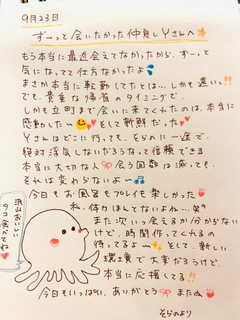 9月23日
ずーっと会いたかった仲良しYさんへ
もう本当に最近会えてなかったから、ずーっと
気になってて仕方なかったよ
まさか本当に転勤してたとは…しかも遠いっ!!
でも、貴重な帰省のタイミングで
しかも立町まで会いに来てくれたのは、本当に
感動した〜 そして新鮮だった
Yさんはどこに行っても、そらのに一途で
絶対浮気しないだろうなって信頼できる
本当に大切な人 会う回数は減っても、
それは変わらないよ〜
今日もお風呂もプレイも楽しかった
私、体力ほしてないよね…
また次いつ会えるか分からない
けど、時間作ってくれるの
待ってるよ〜 そして、新しい
環境で大変だろうけど、
本当に応援してる!!
今日もいっぱい、ありがとう またね
そらのより
沢山おいしい
タコ食べてね